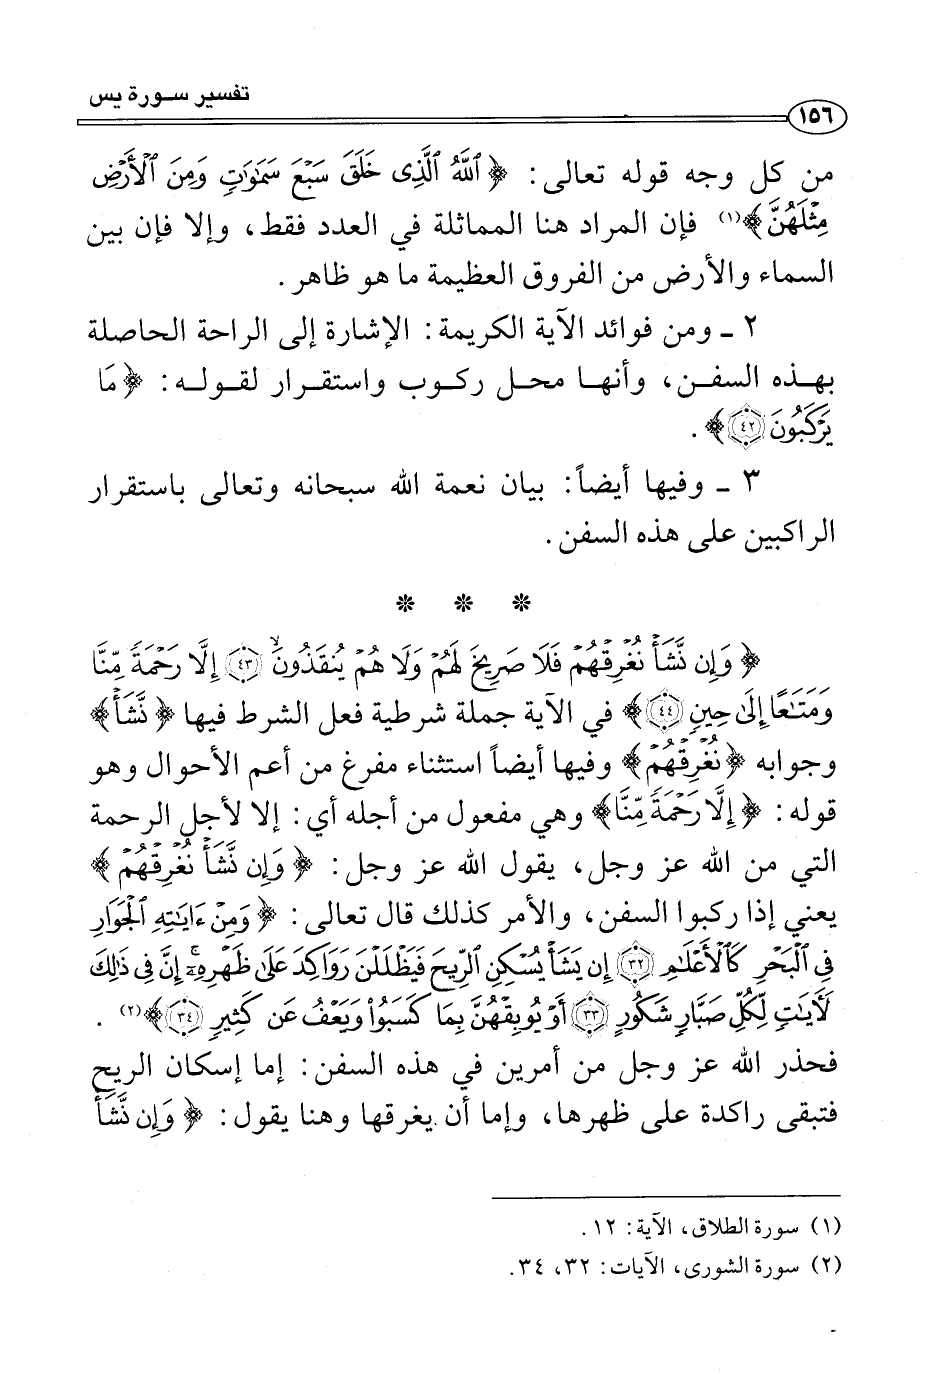 تفسير سورة يس
١٥٦
من كل وجه قوله تعالى: ﴿ٱللَّهُ ٱلَّذِى خَلَقَ سَبْعَ سَمَٰوَٰتٍ وَمِنَ ٱلْأَرْضِ
مِثْلَهُنَّ﴾(١) فإن المراد هنا المماثلة في العدد فقط، وإلا فإن بين
السماء والأرض من الفروق العظيمة ما هو ظاهر.
٢ ـ ومن فوائد الآية الكريمة: الإشارة إلى الراحة الحاصلة
بهذه السفن، وأنها محل ركوب واستقرار لقوله: ﴿مَا
يَرْكَبُونَ ٤٢﴾.
٣ ـ وفيها أيضاً: بيان نعمة الله سبحانه وتعالى باستقرار
الراكبين على هذه السفن.
* * *
﴿وَإِن نَّشَأْ نُغْرِقْهُمْ فَلَا صَرِيخَ لَهُمْ وَلَا هُمْ يُنقَذُونَ ٤٣ إِلَّا رَحْمَةً مِّنَّا
وَمَتَٰعًا إِلَىٰ حِينٍ ٤٤﴾ في الآية جملة شرطية فعل الشرط فيها ﴿نَّشَأْ﴾
وجوابه ﴿نُغْرِقْهُمْ﴾ وفيها أيضاً استثناء مفرغ من أعم الأحوال وهو
قوله: ﴿إِلَّا رَحْمَةً مِّنَّا﴾ وهي مفعول من أجله أي: إلا لأجل الرحمة
التي من الله عز وجل، يقول الله عز وجل: ﴿وَإِن نَّشَأْ نُغْرِقْهُمْ﴾
يعني إذا ركبوا السفن، والأمر كذلك قال تعالى: ﴿وَمِنْ ءَايَٰتِهِ ٱلْجَوَارِ
فِى ٱلْبَحْرِ كَٱلْأَعْلَٰمِ ٣٢ إِن يَشَأْ يُسْكِنِ ٱلرِّيحَ فَيَظْلَلْنَ رَوَاكِدَ عَلَىٰ ظَهْرِهِۦٓ ۚ إِنَّ فِى ذَٰلِكَ
لَأٓيَٰتٍ لِّكُلِّ صَبَّارٍ شَكُورٍ ٣٣ أَوْ يُوبِقْهُنَّ بِمَا كَسَبُوا۟ وَيَعْفُ عَن كَثِيرٍ ٣٤﴾(٢).
فحذر الله عز وجل من أمرين في هذه السفن: إما إسكان الريح
فتبقى راكدة على ظهرها، وإما أن يغرقها وهنا يقول: ﴿وَإِن نَّشَأْ
(١) سورة الطلاق، الآية: ١٢.
(٢) سورة الشورى، الآيات: ٣٢، ٣٤.